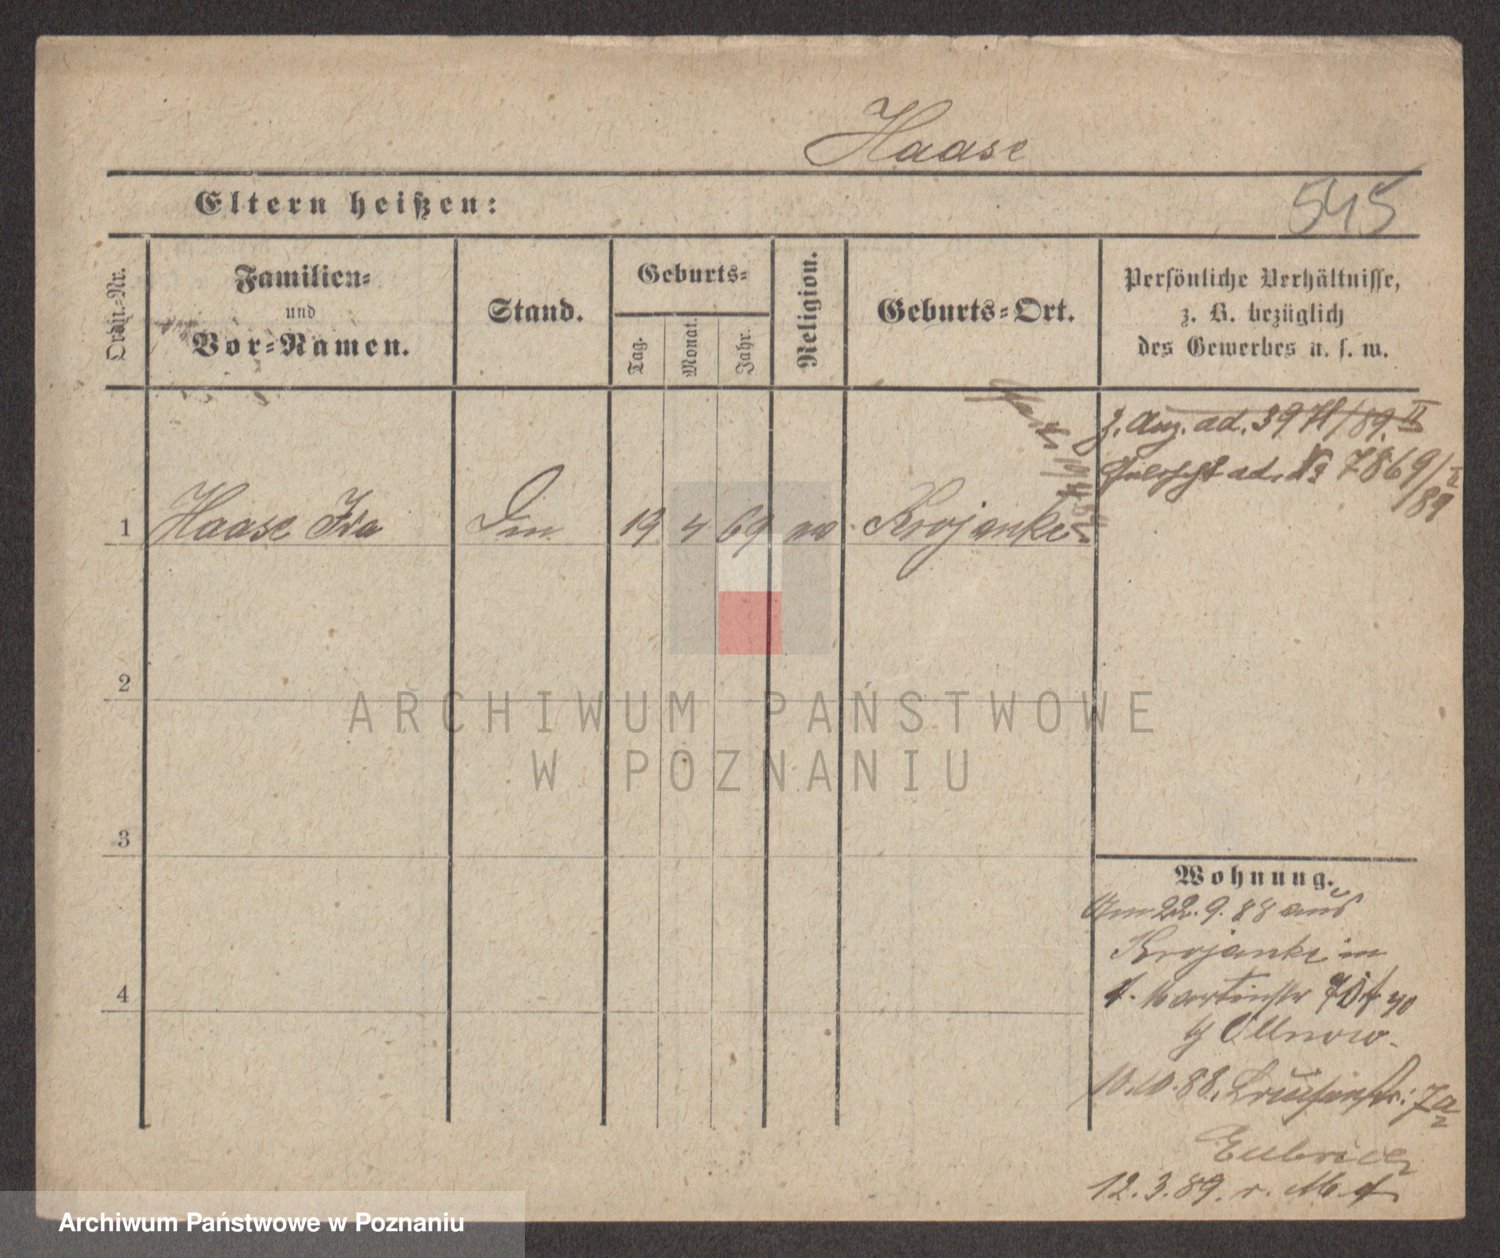 Haase
Eltern heißen:
545
Ordn.-Nr.
Familien-
und
Vor-Namen.
Stand.
Geburts-
Tag.
Monat.
Jahr.
Religion.
Geburts-Ort.
Persönliche Verhältnisse,
z. B. bezüglich
des Gewerbes u. s. w.
ad. 3971/89. II
ad. No 7869/I
/89
1 Haase Ida 19 4 69 Krojanke
2
ARCHIWUM PAŃSTWOWE
W POZNANIU
3
Wohnung.
Am 22.9.88 aus
Krojanke in
Martinstr
Ollnow.
10.10.88. 7a
12.3.89. r.
4
Archiwum Państwowe w Poznaniu